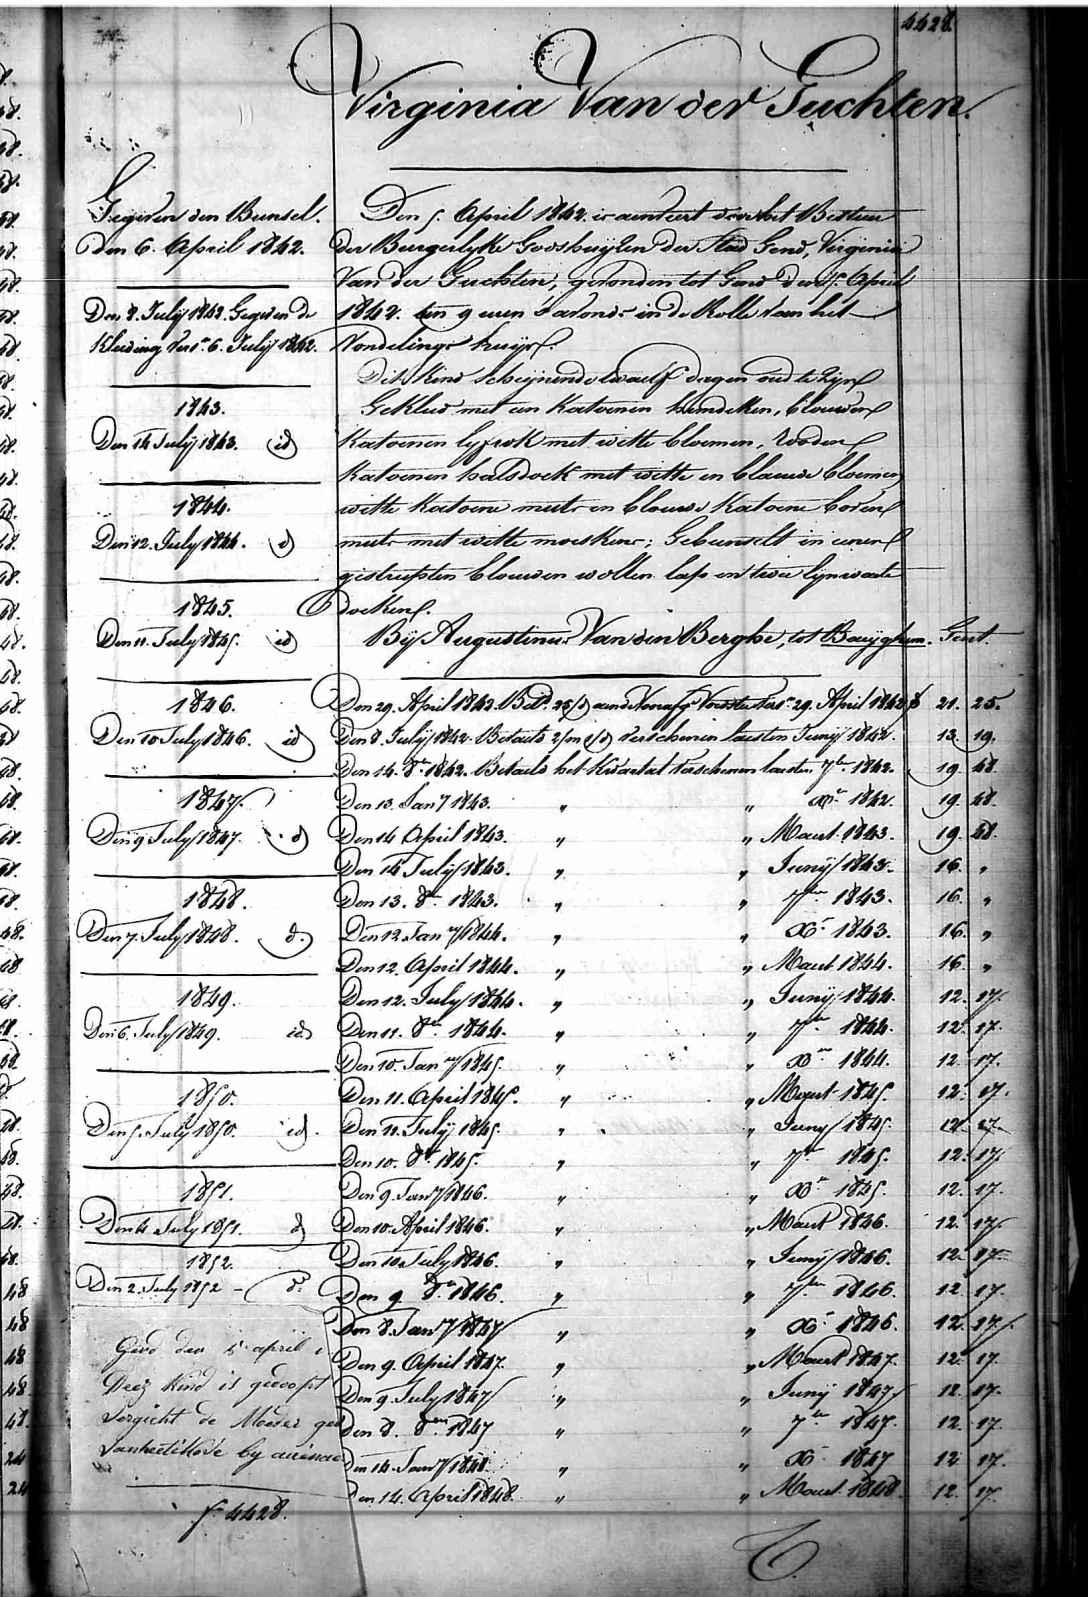 4428.
Virginia Van der Guchten.
Gegeven den Bunsel.
den 6. April 1842.
Den 8. July 1842. Gegeven de
Kleeding Vers.n 6. July 1842.
1843.
Den 14 July 1843. id
1844.
Den 12. July 1844. d
1845.
Den 11. July 1845. id
1846.
Den 10 July 1846. id
1847.
Den 9 July 1847. d
1848.
Den 7. July 1848. d.
1849.
Den 6. July 1849. id
1850.
Den 5. July 1850. id.
1851.
Den 4. July 1851. d
1852.
Den 2. July 1852 - d.
Gend den 5 april
Deez kind is gedoopt
Verzicht de Moeder
by
f. 4428.
Den 5. April 1842. is aenveert door het Bestuer
der Burgerlyke Godshuyzen der Stad Gend, Virginia
Van der Guchten, gevonden tot Gend den 5. April
1842. ten 9 uren s'avonds in de Rolle van het
Vondelings huys.
Dit kind scheynende twaelf dagen oud te zyn
Gekleed met een Katoenen hemdeken, blauwen
Katoenen lyfrok met witte bloemen, Rooden
Katoenen halsdoek met witte en blauwe bloemen
witte Katoene muts en blauwe Katoene boven
muts met witte moeskens; Gebunselt in eenen
gestreepten blauwen wollen lap en twee lynwaete
doeken.
By Augustinus Van den Berghe, tot Bauyghem. Gent.
Den 29. April 1842. Bet. 25/ aen de Voorsten Vers.n 29. April 1842 f 21. 25.
Den 8. July 1842. Betaelt 2/m verschenen laesten Juny 1842. 13. 19.
Den 14. 8.br 1842. Betaelt het Kwartael verschenen laesten 7.ber 1842. 19. 48.
Den 13. Jan.y 1843. " " X.r 1842. 19. 48.
Den 14 April 1843. " " Maert 1843. 19. 48.
Den 14 July 1843. " " Juny 1843. 16. "
Den 13. 8.br 1843. " " 7.ber 1843. 16. "
Den 12. Jan.y 1844. " " X.r 1843. 16. "
Den 12. April 1844. " " Maert 1844. 16 "
Den 12. July 1844. " " Juny 1844 12. 17.
Den 11. 8.br 1844. " " 7.ber 1844. 12. 17.
Den 10. Jan.y 1845. " " X.r 1844. 12. 17.
Den 11. April 1845. " " Maert 1845. 12. 17.
Den 11. July 1845. " " Juny 1845. 12. 17.
Den 10. 8.br 1845. " " 7.ber 1845. 12. 17.
Den 9. Jan.y 1846. " " X.r 1845. 12. 17.
Den 10. April 1846. " " Maert 1846. 12. 17.
Den 10 July 1846. " " Juny 1846. 12. 17.
Den 9 8.br 1846. " " 7.ber 1846. 12. 17.
Den 8. Jan.y 1847 " " X.r 1846. 12. 17.
Den 9. April 1847. " " Maert 1847. 12. 17.
Den 9 July 1847 " " Juny 1847 12. 17.
Den 8. 8.bre 1847 " " 7.ber 1847. 12. 17.
Den 14. Jan.y 1848 " " X.r 1847 12. 17.
Den 14. April 1848. " " Maert 1848 12. 17.